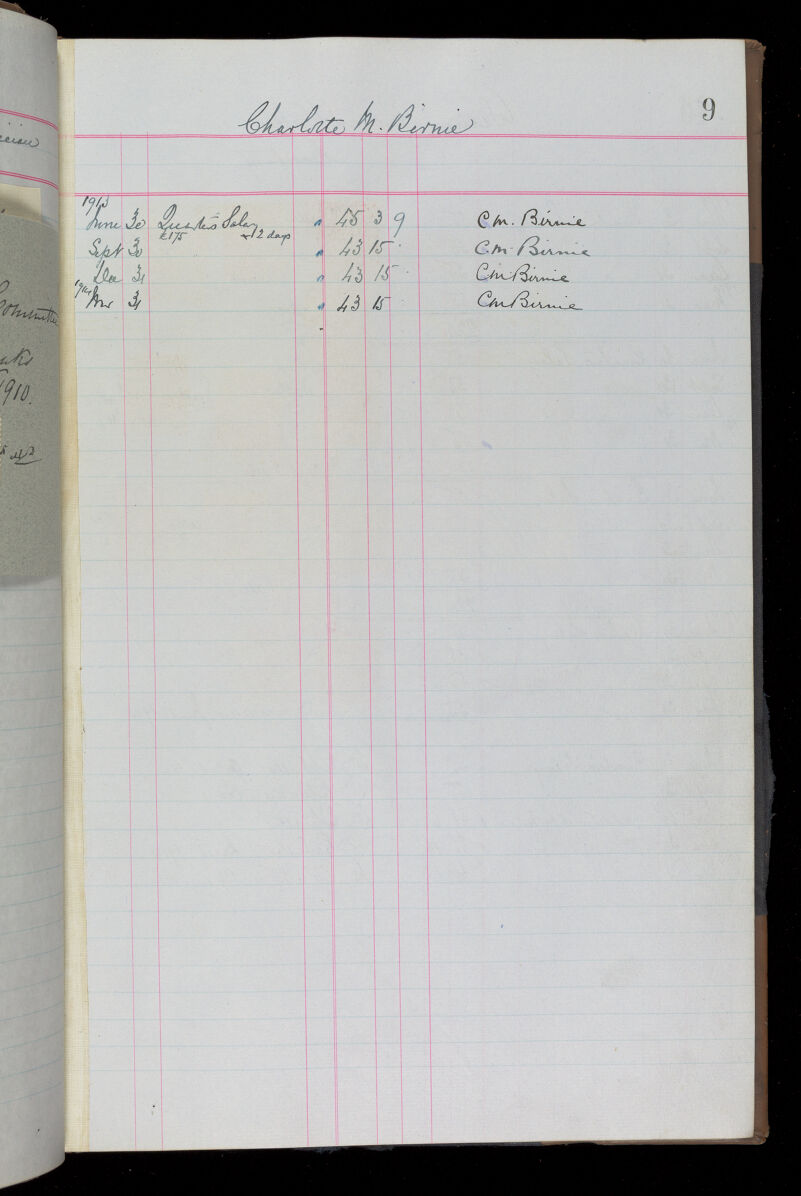 9
Charlotte M. Birnie
1913
June 30 Quarter's Salary " 45 3 9 C.M. Birnie
£175 + 2 days
Sept 30 " 43 15 · C.M. Birnie
Dec 31 " 43 15 · C M Birnie
Mar 31 " 43 15 C M Birnie
1910.